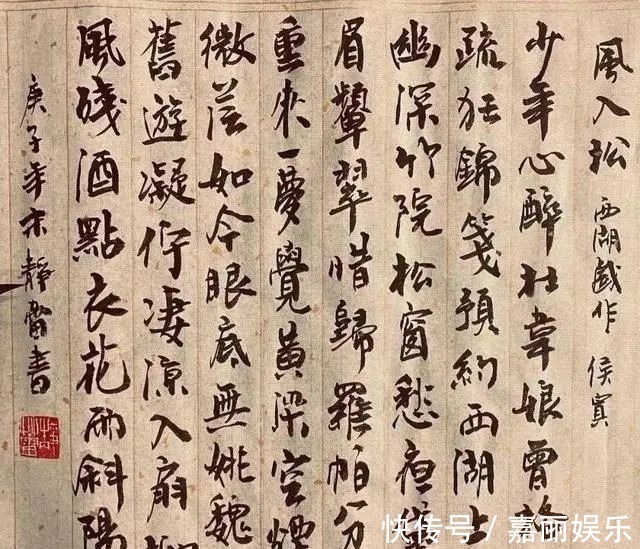 風入松 西湖戲作 侯寘
少年心醉杜韋娘曾格
疏狂錦箋預約西湖上
幽深竹院松窗愁夜
眉顰翠惜歸羅帕分
重來一夢覺黃粱空煙
微茫如今眼底無姚魏
舊遊凝佇凄涼入扇
風殘酒點衣花雨斜陽
庚子年末靜蕾書
快传号 / 嘉丽娱乐